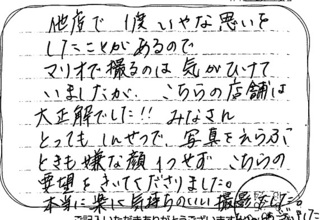 他店で1度いやな思いを
したことがあるので
マリオで撮るのは気がひけて
いましたが、こちらの店舗は
大正解でした!!みなさん
とってもしんせつで、写真をえらぶ
ときも嫌な顔1つせず、こちらの
要望をきいてくださりました。
本当に楽に気持ちのいい撮影でした。
ご記入いただきありがとうございました